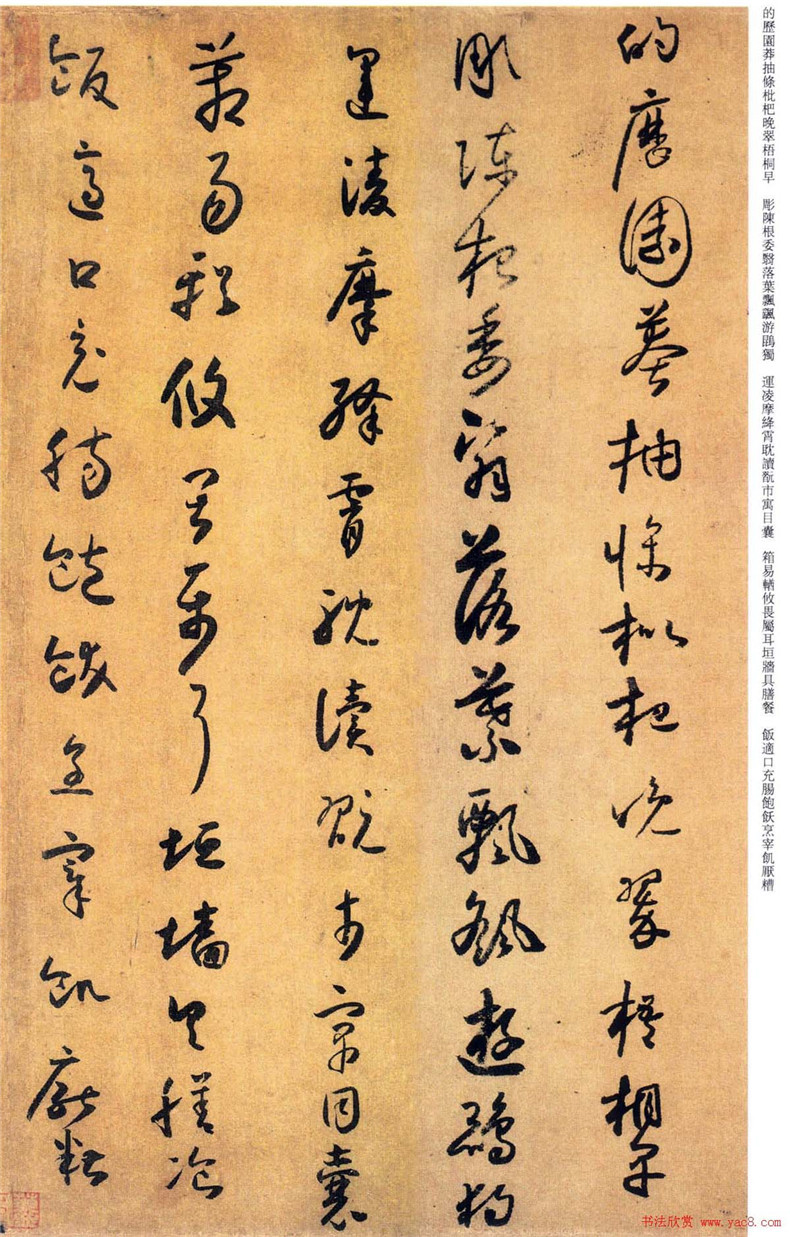 的歷園莽抽條枇杷晚翠梧桐早
彫陳根委翳落葉飄颻遊鵾獨
運淩摩絳霄耽讀翫市寓目囊
箱易輶攸畏屬耳垣墻具膳飡
飯適口充腸飽飫烹宰飢厭糟
的歷園莽抽條枇杷晚翠梧桐早　彫陳根委翳落葉飄颻游鵾獨　運凌摩絳宵耽讀翫市寓目囊　箱易輶攸畏屬耳垣牆具膳餐　飯適口充腸飽飫烹宰飢厭糟
书法欣赏 www.yac8.com